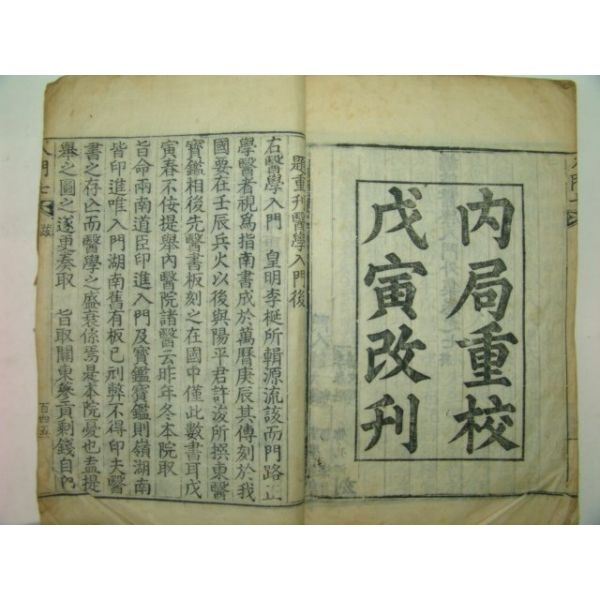 内局重校
戊寅改刊
題重刊醫學入門後
右醫學入門 皇明李梴所輯源流該而門路正
學醫者視爲指南書成於萬曆庚辰其傳刻於我
國要在壬辰兵火以後與陽平君許浚所撰東醫
寶鑑相後先醫書板刻之在國中僅此數書耳戊
寅春不侫提舉內醫院諸醫云昨年冬本院取
旨命兩南道臣印進入門及寶鑑寶鑑則嶺湖南
皆印進唯入門湖南舊有板已刓弊不得印夫醫
書之存亾而醫學之盛衰係焉是本院憂也盍提
舉之圖之遂更奏取 旨取關東蔘貢剩錢自內
入門七
百四五